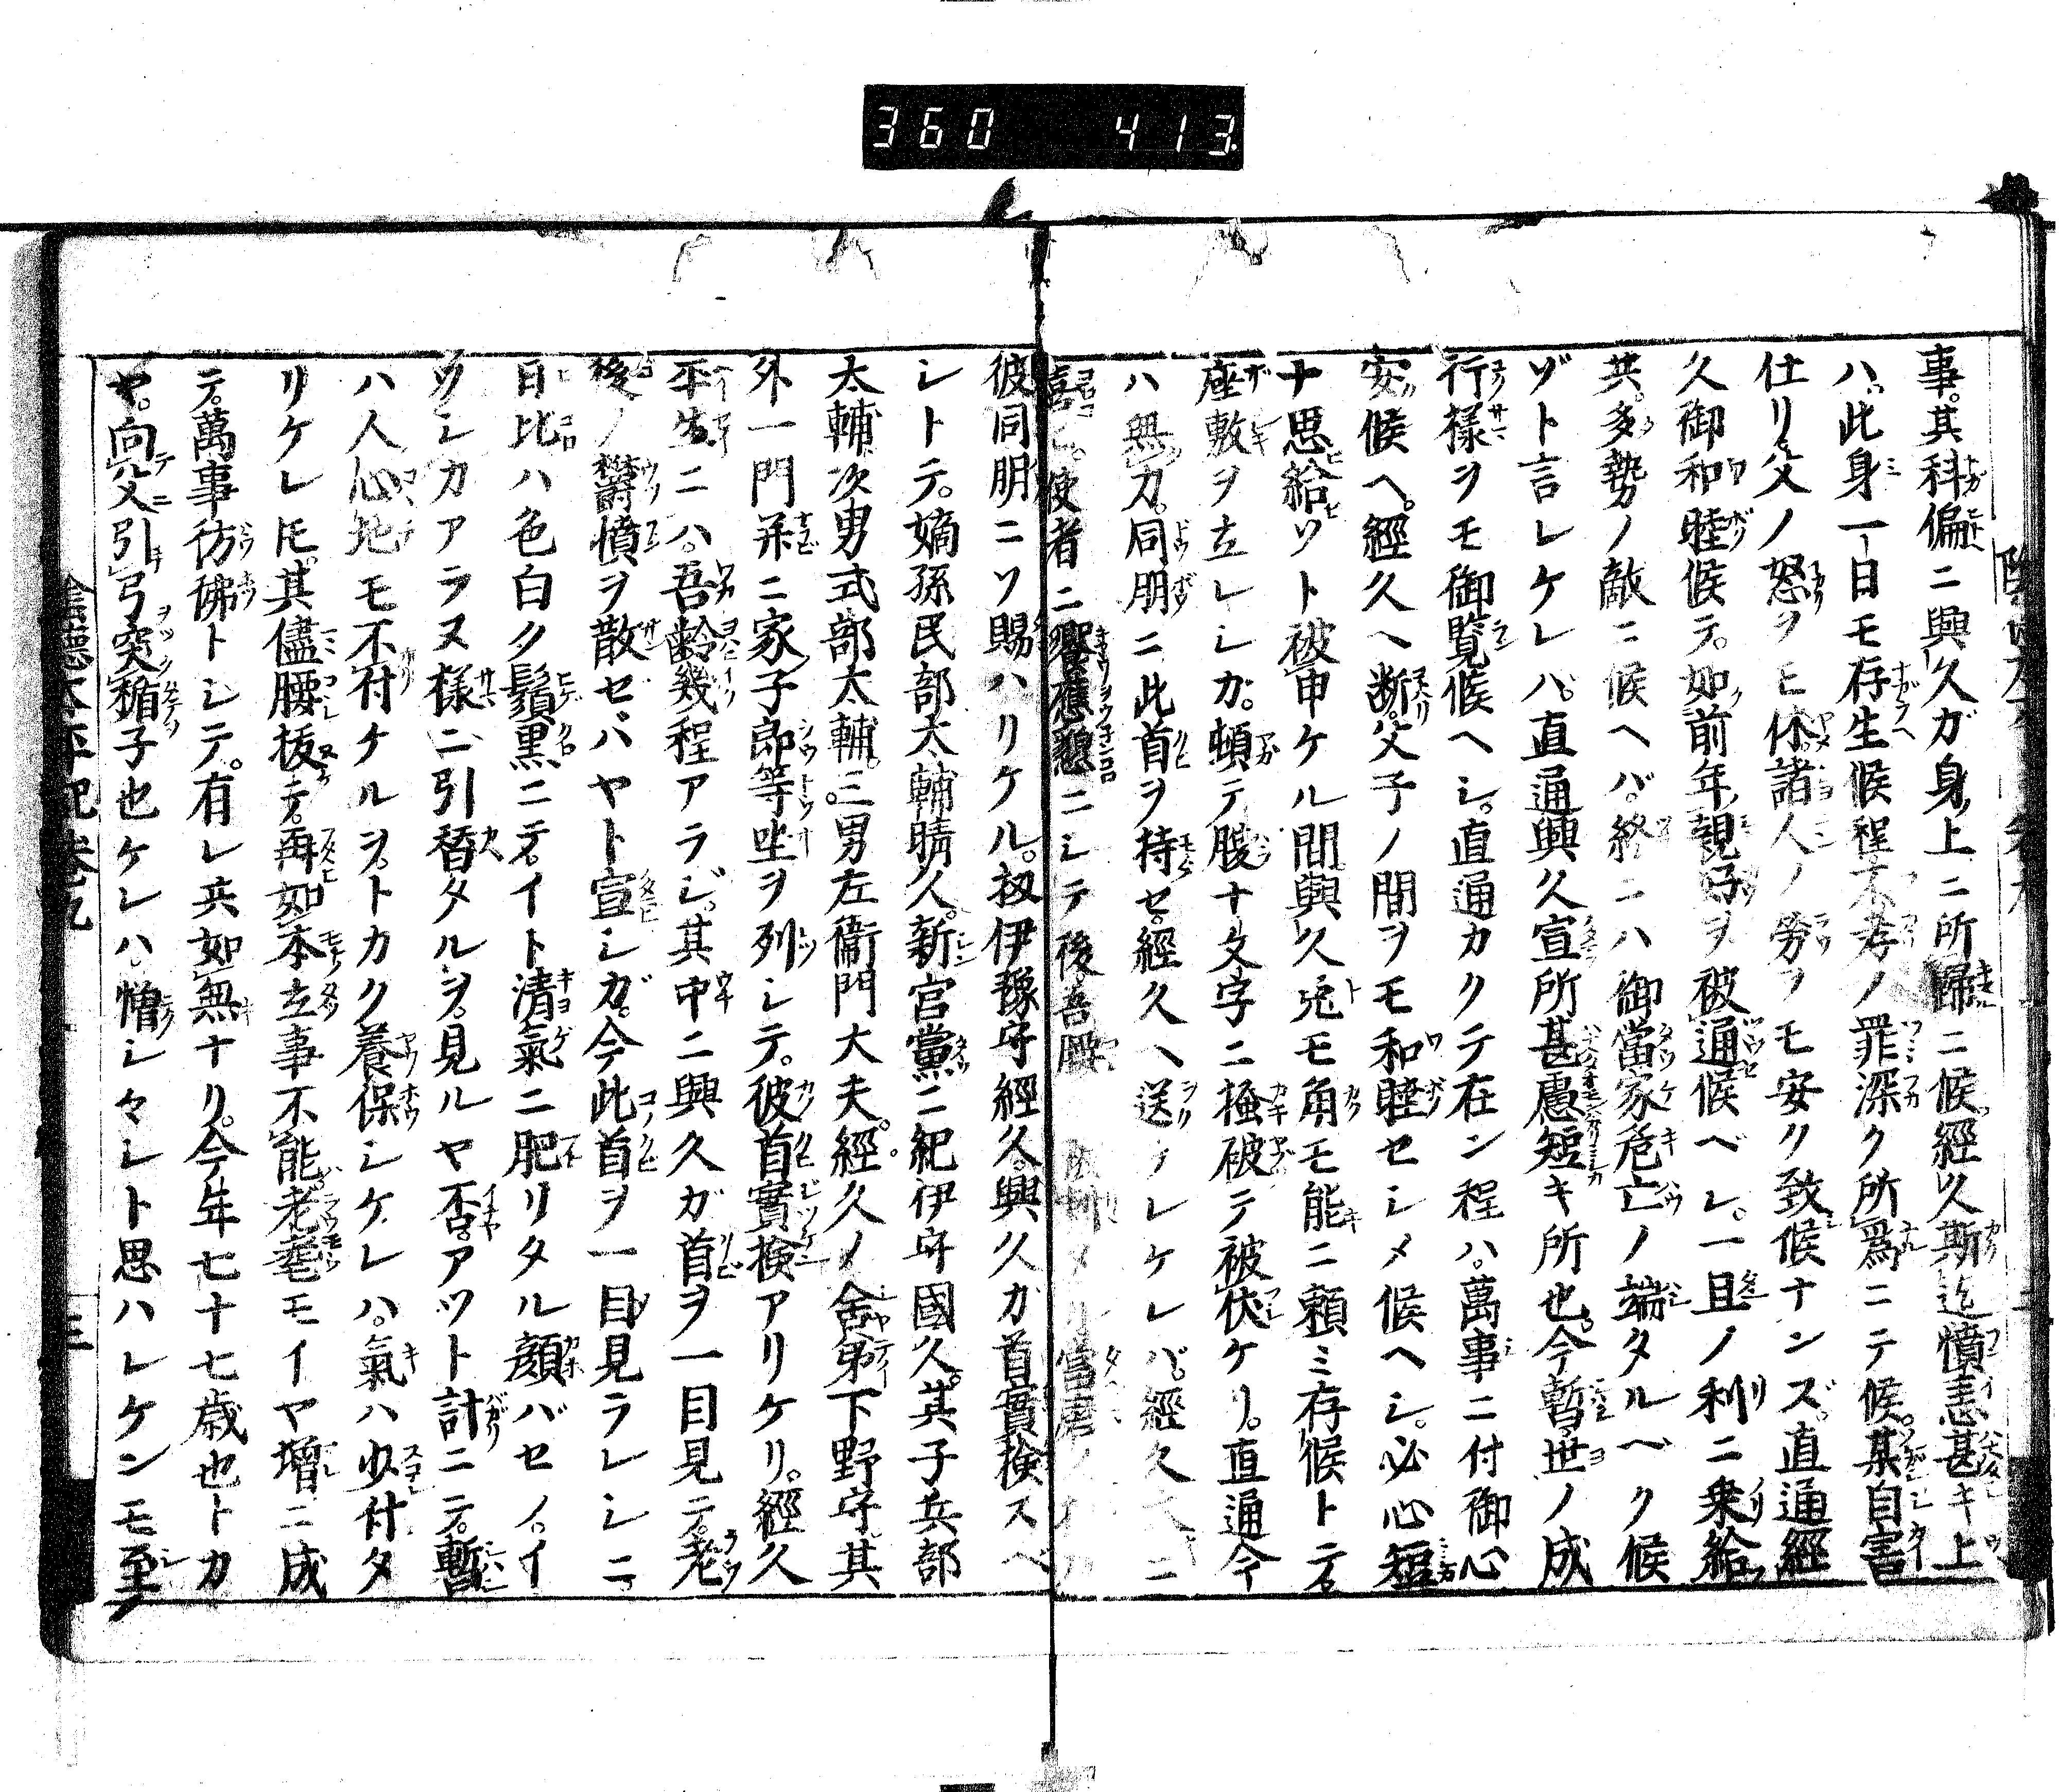 360 413
事。其科偏ニ興久ガ身上ニ所歸ニ候。經久斯迄憤恚甚キ上
ハ。此身一日モ存生候程不孝ノ罪深ク所爲ニテ候。某自害
仕リ父ノ怒ヲモ休。諸人ノ勞ヲモ安ク致候ナンズ。直通經
久御和睦候テ。如前年親子ヲ被通候ベレ。一旦ノ利ニ乗給
共。多勢ノ敵ニ候ヘバ。終ニハ御當家危亡ノ端タルベク候
ゾト言レケレハ。直通興久宣所甚慮短キ所也。今暫世ノ成
行様ヲモ御覧候ヘシ。直通カクテ在ン程ハ。萬事ニ付御心
安候ヘ。經久ヘ断。父子ノ間ヲモ和睦セシメ候ヘシ。必心短
ナ思給ソト被申ケル間。興久兎モ角モ能ニ頼ミ存候トテ。
座敷ヲ立レシカ。頓テ腹十文字ニ掻破テ被伏ケリ。直通今
ハ無力。同朋ニ此首ヲ持セ。經久ヘ送ラレケレバ。經久
喜ヒ。使者ニ饗應懇ニシテ後。吾
彼同朋ニソ賜ハリケル。扨伊豫守經久。興久カ首實検スベ
レトテ。嫡孫民部大輔晴久。新宮黨ニ紀伊守國久。其子兵部
太輔次男式部太輔。三男左衞門大夫。經久ノ舍弟下野守其
外一門并ニ家子郎等坐ヲ列シテ。彼首實検アリケリ。經久
平生ニハ。吾齢幾程アラジ。其中ニ興久ガ首ヲ一目見テ。老
後ノ欝憤ヲ散セバヤト宣シガ。今此首ヲ一目見ラレシニ
日比ハ色白ク鬚黒ニテ。イト清氣ニ肥リタル顔バセノ。イ
ツシカアラヌ様ニ引替タルヲ。見ルヤ否。アツト計ニテ。暫
ハ人心地モ不付ケルヲ。トカク養保シケレハ。氣ハ少付タ
リケレ𪜈。其儘腰抜テ。再如本立事不能。老耄モイヤ増ニ成
テ。萬事彷彿トシテ。有レ共如無ナリ。今年七十七歳也トカ
ヤ。向父引弓突楯子也ケレハ。憎シ々レト思ハレケンモ至
陰德太平記巻九
三